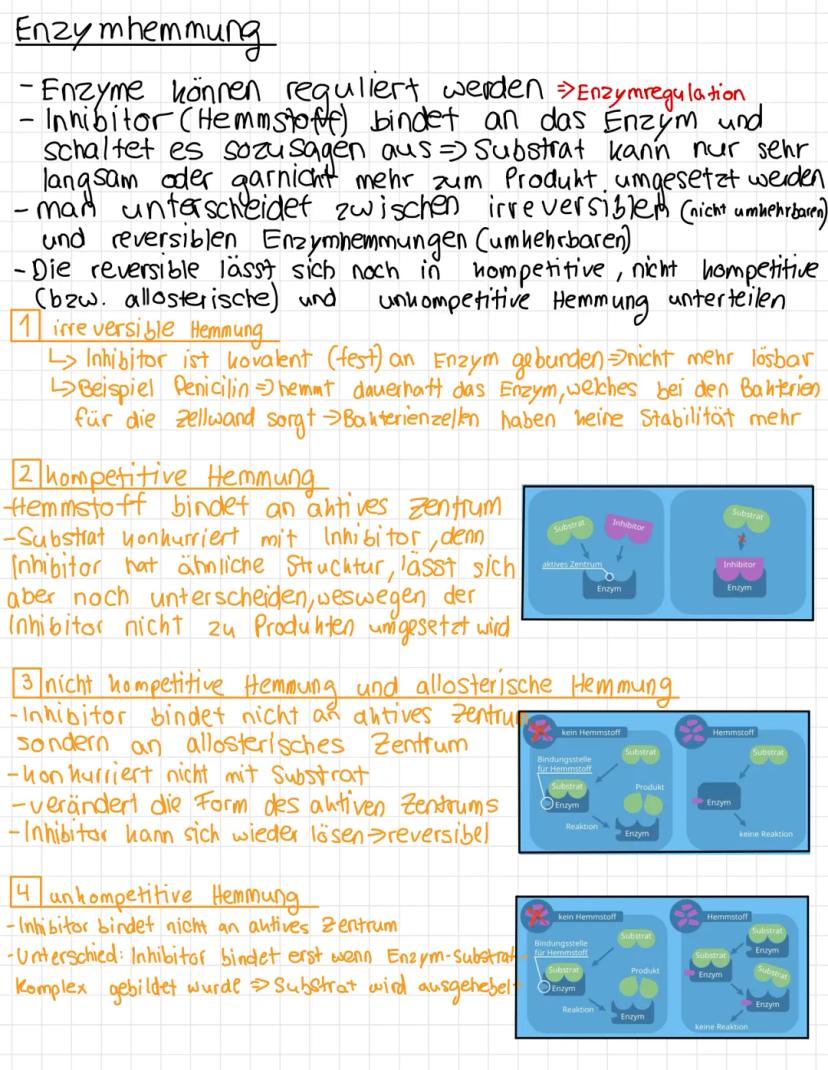 Enzymhemmung
- Enzyme können reguliert werden ⇒ Enzymregulation
- Inhibitor (Hemmstoff) bindet an das Enzym und
schaltet es sozusagen aus ⇒ Substrat kann nur sehr
langsam oder garnicht mehr zum Produkt umgesetzt werden
- man unterscheidet zwischen irreversiblen (nicht umkehrbaren)
und reversiblen Enzymhemmungen (umkehrbaren)
- Die reversible lässt sich noch in kompetitive, nicht kompetitive
(bzw. allosterische) und unkompetitive Hemmung unterteilen
1 irreversible Hemmung
↳ Inhibitor ist kovalent (fest) an Enzym gebunden ⇒ nicht mehr lösbar
↳ Beispiel Penicilin ⇒ hemmt dauerhaft das Enzym, welches bei den Bakterien
für die Zellwand sorgt → Bakterienzellen haben keine Stabilität mehr
2 kompetitive Hemmung
- Hemmstoff bindet an aktives Zentrum
- Substrat konkurriert mit Inhibitor, denn
Inhibitor hat ähnliche Strucktur, lässt sich
aber noch unterscheiden, weswegen der
Inhibitor nicht zu Produkten umgesetzt wird
Substrat
Inhibitor
aktives Zentrum
Enzym
Substrat
Inhibitor
Enzym
3 nicht kompetitive Hemmung und allosterische Hemmung
- Inhibitor bindet nicht an aktives Zentrum
sondern an allosterisches Zentrum
- konkurriert nicht mit Substrat
- verändert die Form des aktiven Zentrums
- Inhibitor kann sich wieder lösen ⇒ reversibel
kein Hemmstoff
Substrat
Bindungsstelle
für Hemmstoff
Substrat
Enzym
Produkt
Reaktion
Enzym
Hemmstoff
Substrat
Enzym
keine Reaktion
4 unkompetitive Hemmung
- Inhibitor bindet nicht an aktives Zentrum
- Unterschied: Inhibitor bindet erst wenn Enzym-Substrat-
Komplex gebildet wurde ⇒ Substrat wird ausgehebelt
kein Hemmstoff
Substrat
Bindungsstelle
für Hemmstoff
Substrat
Enzym
Produkt
Reaktion
Enzym
Hemmstoff
Substrat
Enzym
Substrat
Enzym
Substrat
Enzym
keine Reaktion